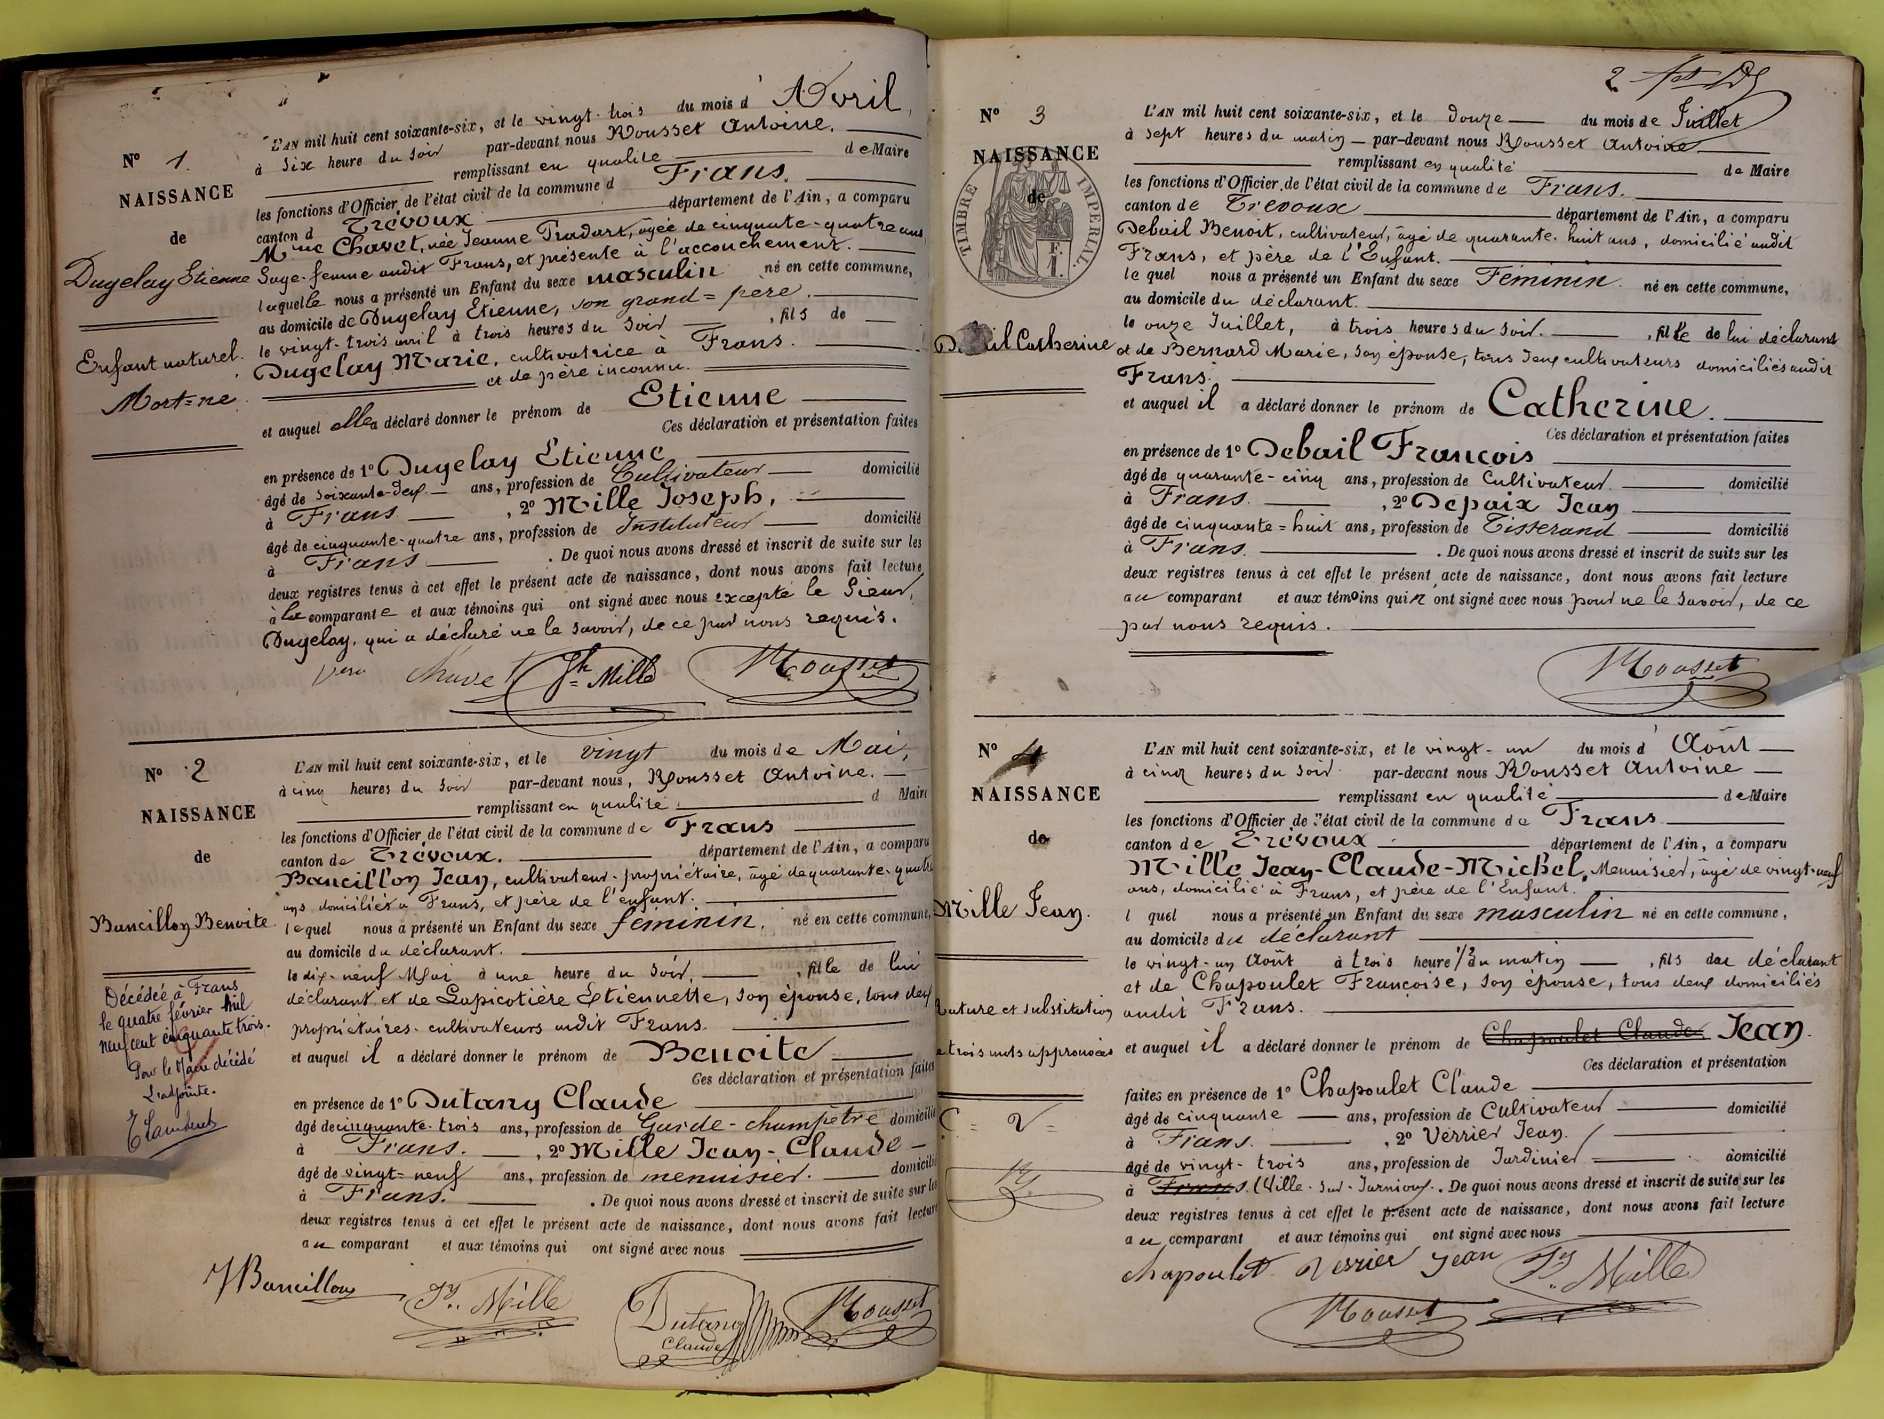 L'AN mil huit cent soixante-six, et le vingt-trois du mois d'Avril,
à Six heure du Soir par-devant nous Rousset Antoine.
remplissant en qualité de Maire
les fonctions d'Officier de l'état civil de la commune d Frans.
canton d Trévoux département de l'Ain, a comparu
Mme Chavet, née Jeanne Pradart, âgée de cinquante-quatre ans
Sage-femme audit Frans, et présente à l'accouchement.
laquelle nous a présenté un Enfant du sexe masculin né en cette commune,
au domicile de Dugelay Etienne, son grand=père.
le vingt-trois avril à trois heures du Soir, fils de
Dugelay Marie, cultivatrice à Frans.
et de père inconnu.
et auquel elle a déclaré donner le prénom de Etienne
Ces déclaration et présentation faites
en présence de 1º Dugelay Etienne
âgé de soixante-deux ans, profession de Cultivateur domicilié
à Frans, 2º Mille Joseph,
âgé de cinquante-quatre ans, profession de Instituteur domicilié
à Frans. De quoi nous avons dressé et inscrit de suite sur les
deux registres tenus à cet effet le présent acte de naissance, dont nous avons fait lecture
à la comparante et aux témoins qui ont signé avec nous excepté le Sieur,
Dugelay, qui a déclaré ne le savoir, de ce par nous requis.
Chavet Jh Mille Rousset
Nº 1.
NAISSANCE
de
Dugelay Etienne
Enfant naturel.
Mort=né
Nº 2
NAISSANCE
de
Bancillon Benoite
Décédée à Frans
le quatre février mil
neuf cent cinquante trois.
Pour le Maire décédé
L'adjointe.
L'AN mil huit cent soixante-six, et le vingt du mois de Mai,
à cinq heures du Soir par-devant nous, Rousset Antoine.
remplissant en qualité d Maire
les fonctions d'Officier de l'état civil de la commune de Frans
canton de Trévoux. département de l'Ain, a comparu
Bancillon Jean, cultivateur-propriétaire, âgé de quarante-quatre
ans domicilié à Frans, et père de l'enfant.
lequel nous a présenté un Enfant du sexe féminin, né en cette commune,
au domicile du déclarant.
le dix-neuf Mai à une heure du Soir, fille de lui
déclarant et de Lapicotière Etiennette, son épouse, tous deux
propriétaires-cultivateurs audit Frans.
et auquel il a déclaré donner le prénom de Benoite
Ces déclaration et présentation faites
en présence de 1º Dutang Claude
âgé de cinquante-trois ans, profession de Garde-champêtre domicilié
à Frans. , 2º Mille Jean-Claude
âgé de vingt=neuf ans, profession de menuisier. domicilié
à Frans. . De quoi nous avons dressé et inscrit de suite sur les
deux registres tenus à cet effet le présent acte de naissance, dont nous avons fait lecture
au comparant et aux témoins qui ont signé avec nous
J Bancillon Jn. Mille Dutang Claude Rousset
2
Nº 3
NAISSANCE
de
TIMBRE IMPERIAL
F.
1.
Catherine
L'AN mil huit cent soixante-six, et le Douze du mois de Juillet
à sept heures du matin par-devant nous Rousset Antoine
remplissant en qualité de Maire
les fonctions d'Officier de l'état civil de la commune de Frans.
canton de Trévoux département de l'Ain, a comparu
Debail Benoit, cultivateur, âgé de quarante-huit ans, domicilié audit
Frans, et père de l'Enfant.
lequel nous a présenté un Enfant du sexe Féminin. né en cette commune,
au domicile du déclarant.
le onze Juillet, à trois heures du Soir. , fille de lui déclarant
et de Bernard Marie, son épouse, tous deux cultivateurs domiciliés audit
Frans.
et auquel il a déclaré donner le prénom de Catherine.
Ces déclaration et présentation faites
en présence de 1º Debail François
âgé de quarante-cinq ans, profession de Cultivateur domicilié
à Frans. , 2º Depaix Jean
âgé de cinquante=huit ans, profession de Tisserand domicilié
à Frans. . De quoi nous avons dressé et inscrit de suite sur les
deux registres tenus à cet effet le présent acte de naissance, dont nous avons fait lecture
au comparant et aux témoins qui n'ont signé avec nous pour ne le savoir, de ce
par nous requis.
Rousset
Nº 4
NAISSANCE
de
Mille Jean.
Rature et substitution
trois mots approuvées
L'AN mil huit cent soixante-six, et le vingt-un du mois d'Août
à cinq heures du Soir par-devant nous Rousset Antoine
remplissant en qualité de Maire
les fonctions d'Officier de l'état civil de la commune de Frans
canton de Trévoux département de l'Ain, a comparu
Mille Jean-Claude-Michel, Menuisier, âgé de vingt-neuf
ans, domicilié à Frans, et père de l'Enfant.
l quel nous a présenté un Enfant du sexe masculin né en cette commune,
au domicile du déclarant
le vingt-un Août à trois heure 1/2 du matin, fils du déclarant
et de Chapoulet Françoise, son épouse, tous deux domiciliés
audit Frans.
et auquel il a déclaré donner le prénom de Chapoulet Claude Jean.
Ces déclaration et présentation
faites en présence de 1º Chapoulet Claude
âgé de cinquante ans, profession de Cultivateur domicilié
à Frans. , 2º Verrier Jean.
âgé de vingt-trois ans, profession de Jardinier domicilié
à Frans. (Ville-Sur-Jarnioux. . De quoi nous avons dressé et inscrit de suite sur les
deux registres tenus à cet effet le présent acte de naissance, dont nous avons fait lecture
au comparant et aux témoins qui ont signé avec nous
Chapoulet Verrier Jean Jn. Mille
Rousset